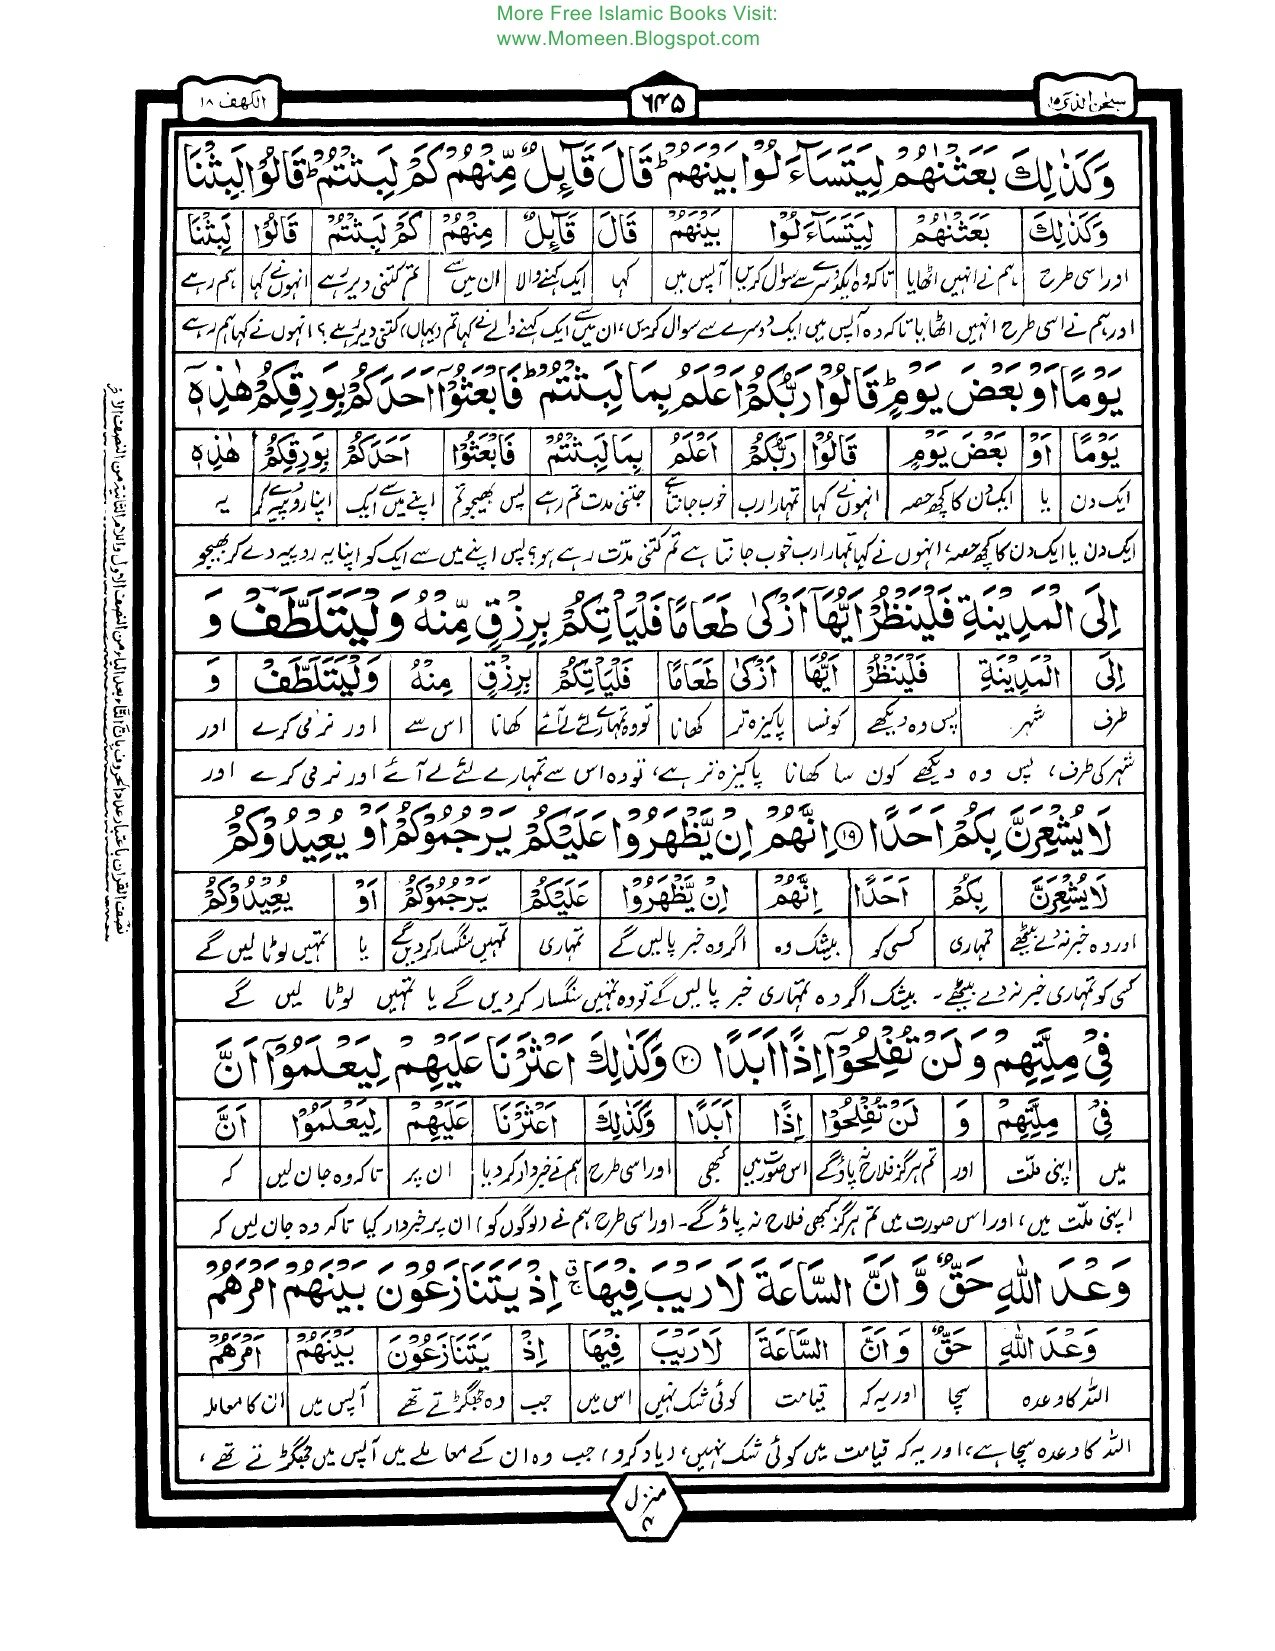 More Free Islamic Books Visit:
www.Momeen.Blogspot.com
سبحٰن الذی ۱۵
۶۴۵
الکھف ۱۸
وَكَذٰلِكَ بَعَثْنٰهُمْ لِيَتَسَآءَلُوْا بَيْنَهُمْ ؕ قَالَ قَآئِلٌ مِّنْهُمْ كَمْ لَبِثْتُمْ ؕ قَالُوْا لَبِثْنَا
وَكَذٰلِكَ بَعَثْنٰهُمْ لِيَتَسَآءَلُوْا بَيْنَهُمْ قَالَ قَآئِلٌ مِنْهُمْ كَمْ لَبِثْتُمْ قَالُوْا لَبِثْنَا
اور اسی طرح ہم نے انہیں اٹھایا تاکہ وہ ایکدوسرے سے سوال کریں آپس میں کہا ایک کہنے والا ان میں سے تم کتنی دیر رہے انہوں نے کہا ہم رہے
اور ہم نے اسی طرح انہیں اٹھایا تاکہ وہ آپس میں ایک دوسرے سے سوال کریں، ان میں سے ایک کہنے والے نے کہا تم (یہاں) کتنی دیر رہے؟ انہوں نے کہا ہم رہے
يَوْمًا اَوْ بَعْضَ يَوْمٍ ؕ قَالُوْا رَبُّكُمْ اَعْلَمُ بِمَا لَبِثْتُمْ ؕ فَابْعَثُوْۤا اَحَدَكُمْ بِوَرِقِكُمْ هٰذِهٖۤ
يَوْمًا اَوْ بَعْضَ يَوْمٍ قَالُوْا رَبُّكُمْ اَعْلَمُ بِمَا لَبِثْتُمْ فَابْعَثُوْۤا اَحَدَكُمْ بِوَرِقِكُمْ هٰذِهٖ
ایک دن یا ایک دن کا کچھ حصہ انہوں نے کہا تمہارا رب خوب جانتا ہے جتنی مدت تم رہے پس بھیجو تم اپنے میں سے ایک اپنا روپیہ دے کر یہ
ایک دن یا ایک دن کا کچھ حصہ، انہوں نے کہا تمہارا رب خوب جانتا ہے تم کتنی مدّت رہے ہو؟ پس اپنے میں سے ایک کو اپنا یہ روپیہ دے کر بھیجو
اِلَى الْمَدِيْنَةِ فَلْيَنْظُرْ اَيُّهَاۤ اَزْكٰى طَعَامًا فَلْيَاْتِكُمْ بِرِزْقٍ مِّنْهُ وَلْيَتَلَطَّفْ وَ
اِلَى الْمَدِيْنَةِ فَلْيَنْظُرْ اَيُّهَا اَزْكٰى طَعَامًا فَلْيَاْتِكُمْ بِرِزْقٍ مِنْهُ وَلْيَتَلَطَّفْ وَ
طرف شہر پس وہ دیکھے کونسا پاکیزہ تر کھانا تو وہ تمہارے لئے لے آئے کھانا اس سے اور نرمی کرے اور
شہر کی طرف، پس وہ دیکھے کون سا کھانا پاکیزہ تر ہے، تو وہ اس سے تمہارے لئے لے آئے اور نرمی کرے اور
لَا يُشْعِرَنَّ بِكُمْ اَحَدًا ۝۱۹ اِنَّهُمْ اِنْ يَّظْهَرُوْا عَلَيْكُمْ يَرْجُمُوْكُمْ اَوْ يُعِيْدُوْكُمْ
لَا يُشْعِرَنَّ بِكُمْ اَحَدًا اِنَّهُمْ اِنْ يَّظْهَرُوْا عَلَيْكُمْ يَرْجُمُوْكُمْ اَوْ يُعِيْدُوْكُمْ
اور وہ خبر نہ دے بیٹھے تمہاری کسی کو بیشک وہ اگر وہ خبر پالیں گے تمہاری تمہیں سنگسار کردیں گے یا تمہیں لوٹا لیں گے
کسی کو تمہاری خبر نہ دے بیٹھے۔ بیشک اگر وہ تمہاری خبر پالیں گے تو وہ تمہیں سنگسار کر دیں گے یا تمہیں لوٹا لیں گے
فِىْ مِلَّتِهِمْ وَلَنْ تُفْلِحُوْۤا اِذًا اَبَدًا ۝۲۰ وَكَذٰلِكَ اَعْثَرْنَا عَلَيْهِمْ لِيَعْلَمُوْۤا اَنَّ
فِىْ مِلَّتِهِمْ وَ لَنْ تُفْلِحُوْۤا اِذًا اَبَدًا وَكَذٰلِكَ اَعْثَرْنَا عَلَيْهِمْ لِيَعْلَمُوْۤا اَنَّ
میں اپنی ملّت اور تم ہرگز فلاح نہ پاؤ گے اس صورت میں کبھی اور اسی طرح ہم نے خبردار کر دیا ان پر تاکہ وہ جان لیں کہ
اپنی ملّت میں، اور اس صورت میں تم ہرگز کبھی فلاح نہ پاؤ گے۔ اور اسی طرح ہم نے (لوگوں کو) ان پر خبردار کیا تاکہ وہ جان لیں کہ
وَعْدَ اللّٰهِ حَقٌّ وَّاَنَّ السَّاعَةَ لَا رَيْبَ فِيْهَا ۚ اِذْ يَتَنَازَعُوْنَ بَيْنَهُمْ اَمْرَهُمْ
وَعْدَ اللّٰهِ حَقٌّ وَاَنَّ السَّاعَةَ لَا رَيْبَ فِيْهَا اِذْ يَتَنَازَعُوْنَ بَيْنَهُمْ اَمْرَهُمْ
اللہ کا وعدہ سچا اور یہ کہ قیامت کوئی شک نہیں اس میں جب وہ جھگڑتے تھے آپس میں ان کا معاملہ
اللہ کا وعدہ سچا ہے، اور یہ کہ قیامت میں کوئی شک نہیں، (یاد کرو) جب وہ ان کے معاملے میں آپس میں جھگڑتے تھے،
منزل ۴
نصف القرآن باعتبار عدد الحروف بان التاء بعد الیاء من النصف الاول واللام الثانیة من النصف الاٰخر